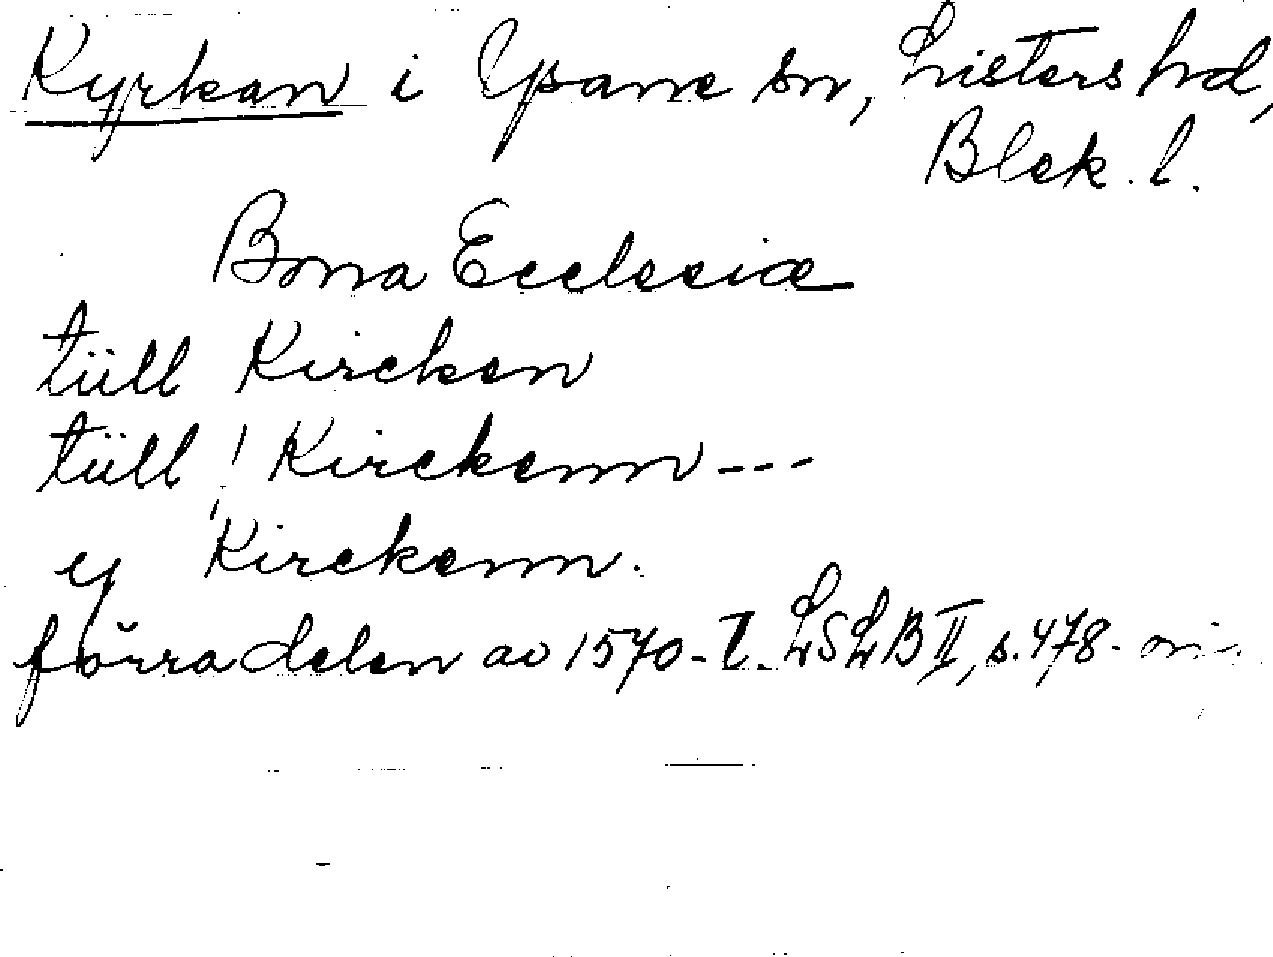 Kyrkan i Ysane sn, Listers hd,
Blek. l.
Bona Ecclesiæ
tüll Kircken
tüll ! Kirckenn ---
y Kirckenn.
förra delen av 1570-t. LSLB II, s. 478.